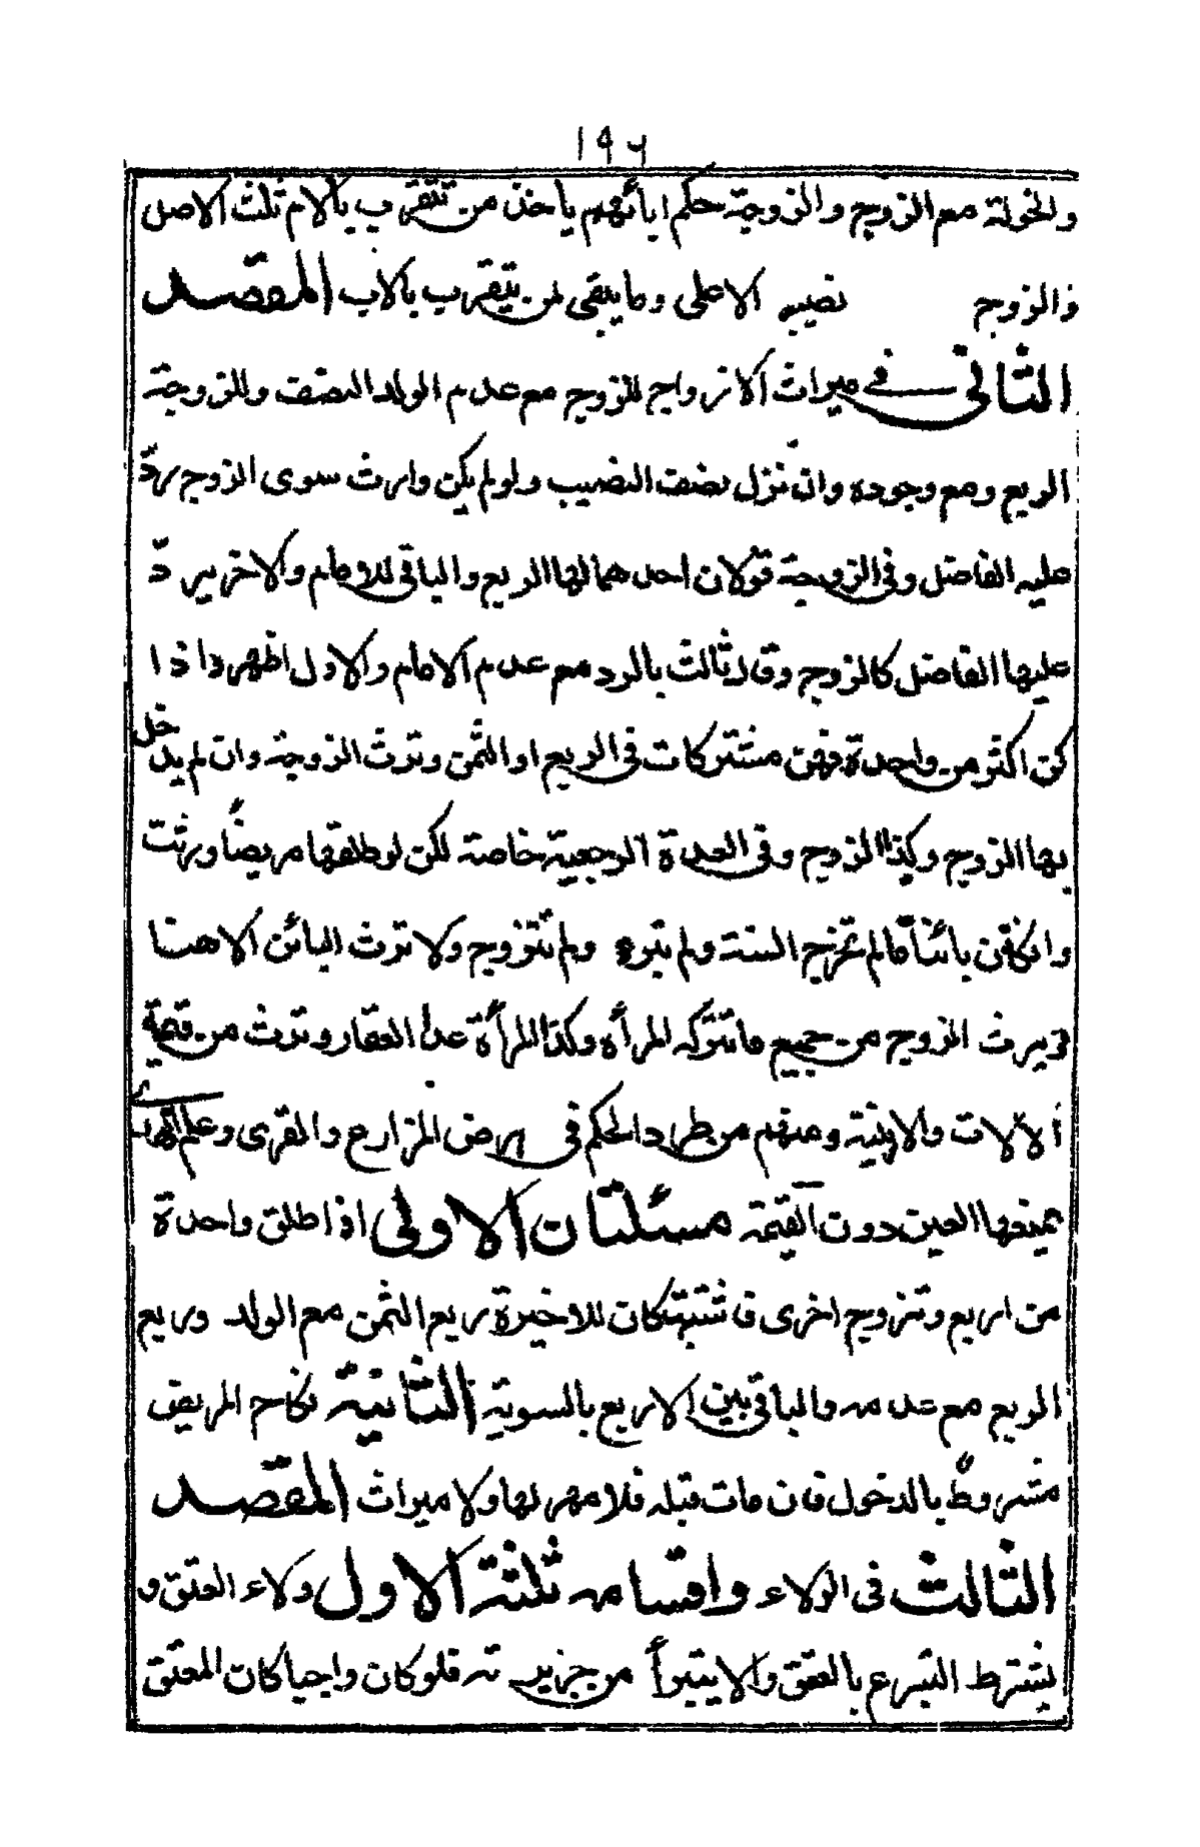 ١٩٦
والخولة مع الزوج والزوجة حكم ابائهم ياخذ من تتقرب بالام ثلث الاصل
والزوج نصيبه الاعلى وما يبقى لمن يتقرب بالاب المقصد
الثانى فى ميراث الازواج للزوج مع عدم الولد النصف وللزوجة
الربع ومع وجوده وان نزل نصف النصيب ولو لم يكن وارث سوى الزوج ردّ
عليه الفاضل وفى الزوجة قولان احدهما لها الربع والباقى للامام والاخر يردّ
عليها الفاضل كالزوج وقال ثالث بالرد مع عدم الامام والاول اظهر داذا
كن اكثر من واحدة فهن مشتركات فى الربع او الثمن وترث الزوجة وان لم يدخل
بها الزوج وكذا الزوج وفى العدة الرجعية خاصة لكن لو طلقها مريضًا ورثت
وان كان بائنًا ما لم تخرج السنة ولم يبرء ولم تتزوج ولا ترث البائن الا هنا
ويرث الزوج من جميع ما تتركه المرأة وكذا المرأة عدا العقار وترث من قيمة
الالات والابنية ومنهم من طرد الحكم فى ارض المزارع والقرى وعلم الهدى
يمنعها العين دون القيمة مسئلتان الاولى اذا طلق واحدة
من اربع وتزوج اخرى فاشتبهت كان للاخيرة ربع الثمن مع الولد وربع
الربع مع عدمه والباقى بين الاربع بالسوية الثانية نكاح المريض
مشروطٌ بالدخول فان مات قبله فلا مهر لها ولا ميراث المقصد
الثالث فى الولاء واقسامه ثلثة الاول ولاء العتق و
يشترط التبرع بالعتق والا يتبرأ من جريرته فلو كان واجبا كان المعتق